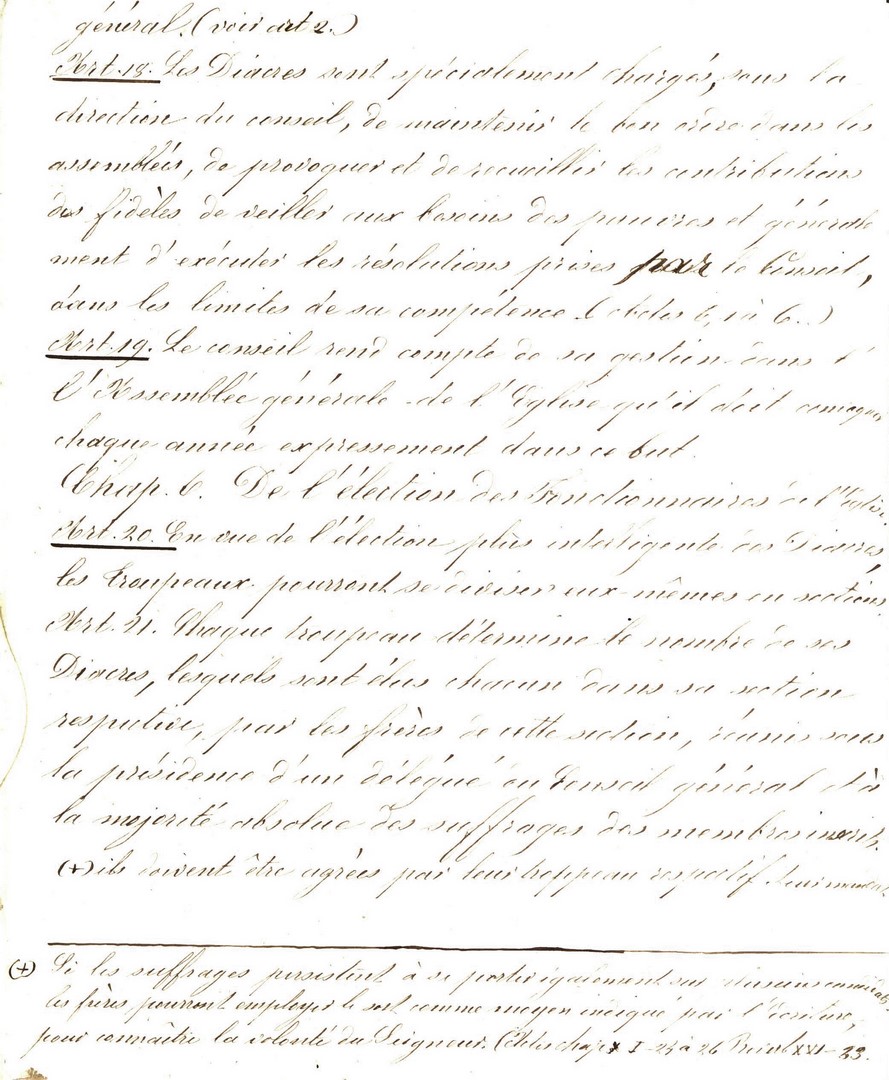 général. (voir art 2.)
Art. 18. Les Diacres sont spécialement chargés, sous la
direction du conseil, de maintenir le bon ordre dans les
assemblées, de provoquer et de recueillir les contributions
des fidèles de veiller aux besoins des pauvres et générale
ment d'exécuter les résolutions prises par le Conseil,
dans les limites de sa compétence. ( 6, 1 à 6..)
Art. 19. Le conseil rend compte de sa gestion dans l'
l'Assemblée générale de l'Eglise qu'il doit convoquer
chaque année expressement dans ce but.
Chap. 6. De l'élection des Fonctionnaires de l'Eglise.
Art. 20. En vue de l'élection plus intelligente des Diacres,
les troupeaux pourront se diviser eux-mêmes en sections.
Art. 21. Chaque troupeau détermine le nombre de ses
Diacres, lesquels sont élus chacun dans sa section
respective, par les frères de cette section, réunis sous
la présidence d'un délégué du Conseil général et à
la majorité absolue des suffrages des membres inscrits.
(+) ils doivent être agrées par leur troppeau respectif. Leur mandat
(+) Si les suffrages persistent à se porter également sur candidats
les frères pourront employer le sort comme moyen indiqué par l'écriture,
pour connaître la volonté du Seigneur. ( chap I - 23 à 26 XVI - 33.